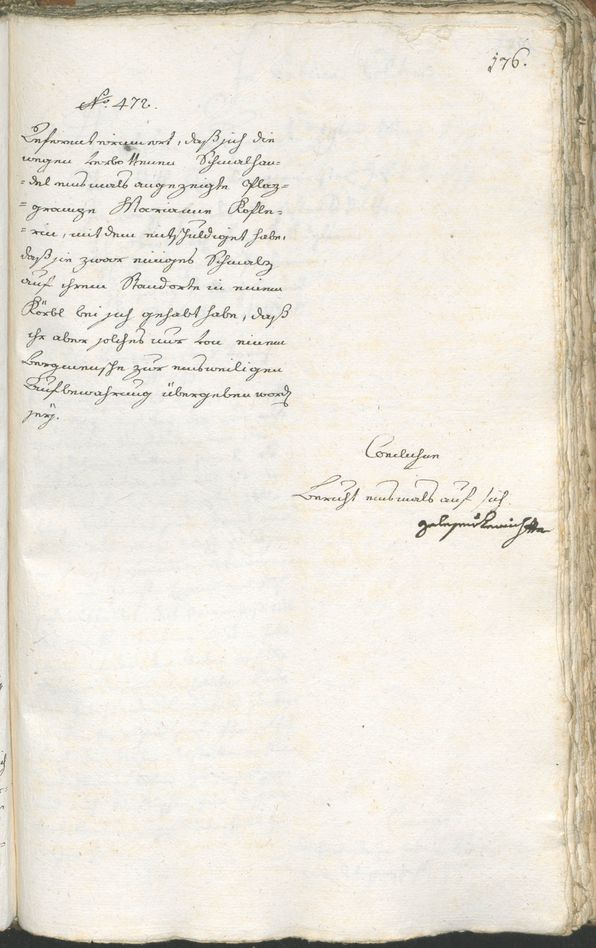 176.
No. 472.
Referent erinnert, daß sich die
wegen verbottenen Schmalhan-
-del einsmals angezeigte Plaz-
-grampe Marianne Kofle-
-rin, mit dem entschuldiget habe,
daß sie zwar einiges Schmalz
auf ihrem Standorte in einem
Körbl bei sich gehabt habe, daß
ihr aber solches nur von einem
Bergmensche zur einsweiligen
Aufbewahrung übergeben word
seÿ.
Conclusum
Bericht einsmals auf sich